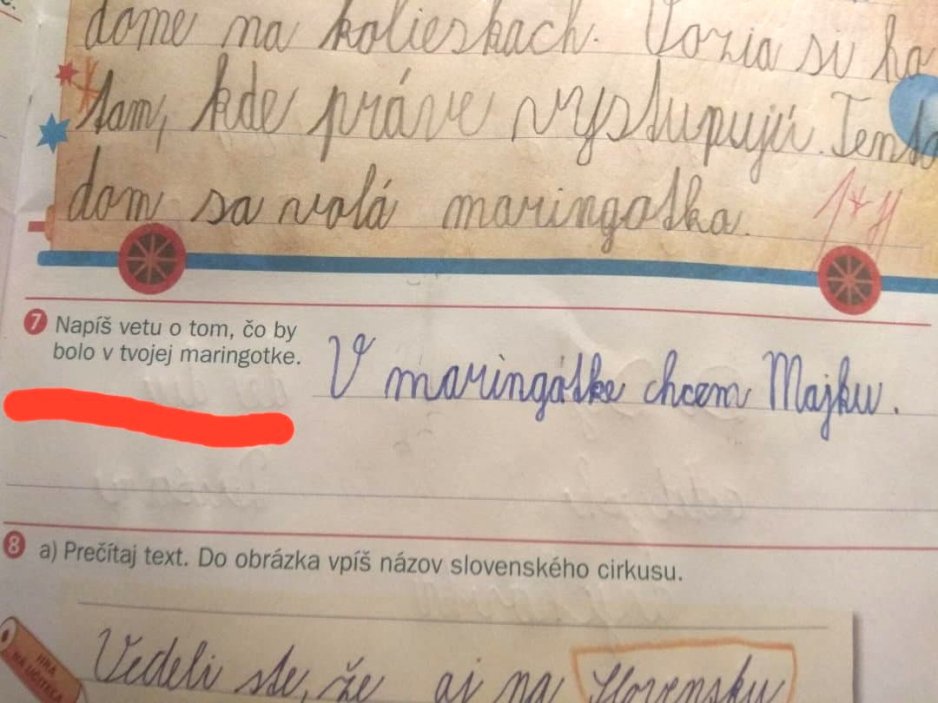 dome na kolieskach. Vozia si ho
tam, kde práve vystupujú. Tento
dom sa volá maringotka.
7 Napíš vetu o tom, čo by
bolo v tvojej maringotke.
V maringótke chcem Majku.
8 a) Prečítaj text. Do obrázka vpíš názov slovenského cirkusu.
HRA
NA UČITEĽA
Vedeli ste, že aj na Slovensku